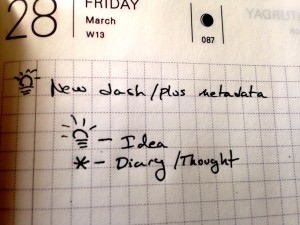 28
FRIDAY
March
W13
087
New dash/plus metadata
— Idea
* — Diary/Thought